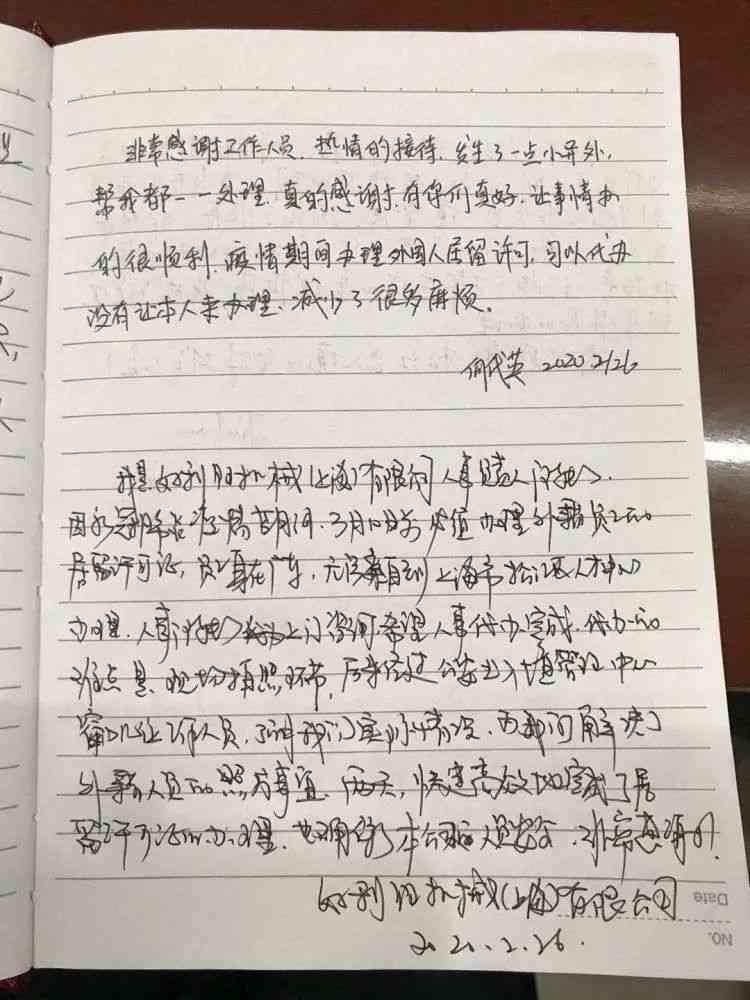 非常感谢工作人员. 热情的接待. 发生了一点小意外,
帮我都一一处理. 真的感谢. 有你们真好. 让事情办
的很顺利. 疫情期间办理外国人居留许可, 可以代办
没有让本人来办理、减少了很多麻烦。
何代英 2020.2/26
我是好利旺机械(上海)有限公司人事负责人
因新冠肺炎疫情期间. 3月10日前必须办理外籍员工的
居留许可证, 员工身在广东, 无法亲自到上海市松江区人才中心
办理. 人事 上门咨询希望人事代办完成. 代办的
难点是 现场拍照环节, 后来经过公安出入境管理中心
窗口工作人员. 了解我们实际情况. 为我们解决了
外籍人员的照片事宜. 两天, 快速高效地完成了居
留许可证的办理. 也确保了本公司的人员安全. 非常感谢!
好利旺机械(上海)有限公司
2020.2.26.
Date
No.